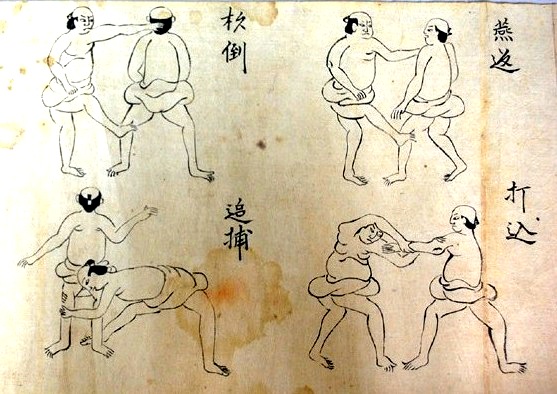 燕返
打込
杦倒
追捕